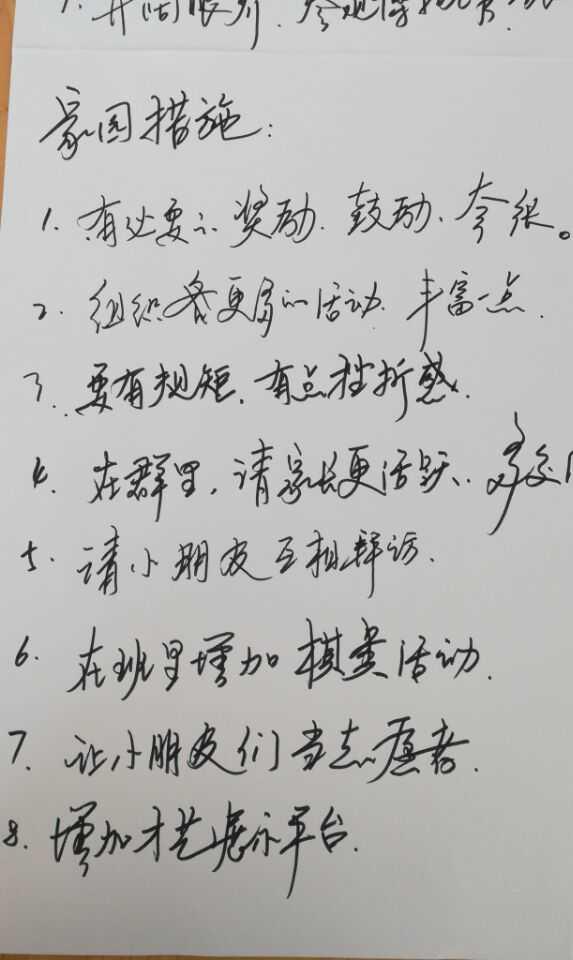 开阔眼界,参观
家园措施:
1. 有必要的奖励、鼓励、
2. 组织更多的活动. 丰富一点.
3. 要有规矩, 有点挫折感.
4. 在群里, 请家长更活跃, 多交
5. 请小朋友互相拜访.
6. 在班里增加棋类活动.
7. 让小朋友们当志愿者.
8. 增加才艺展示平台.